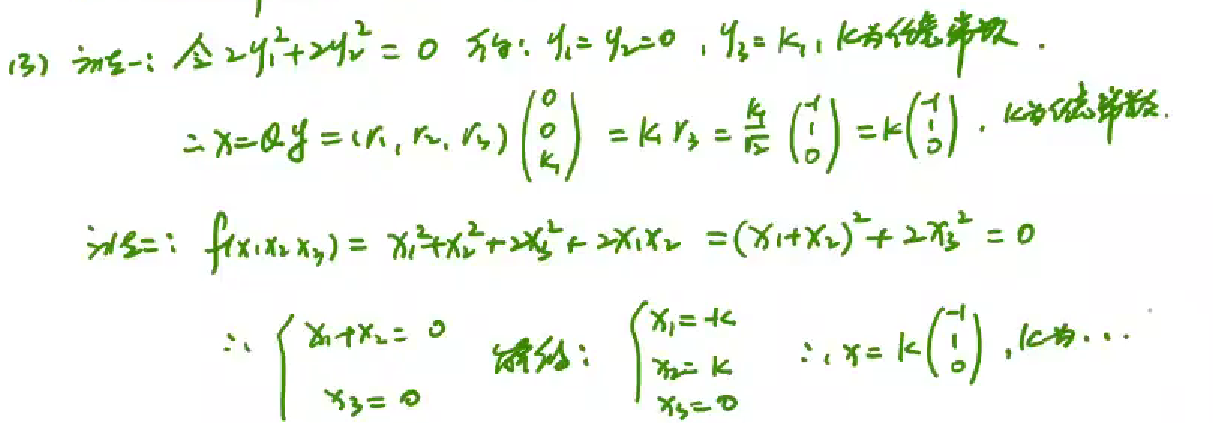 (3) 法一: 令 2y₁²+2y₂² = 0 可得: y₁ = y₂ = 0 , y₃ = k₁ , k₁为任意常数 .
∴ x = Qy = (r₁, r₂, r₃) (0 0 k₁)ᵀ = k₁ r₃ = k₁/√2 (-1 1 0)ᵀ = k (-1 1 0)ᵀ . k为任意常数.
法二: f(x₁ x₂ x₃) = x₁²+x₂²+2x₃²+2x₁x₂ = (x₁+x₂)²+2x₃² = 0
∴ { x₁+x₂ = 0 x₃ = 0 解得: { x₁ = -k x₂ = k x₃ = 0 ∴ x = k (-1 1 0)ᵀ , k为...